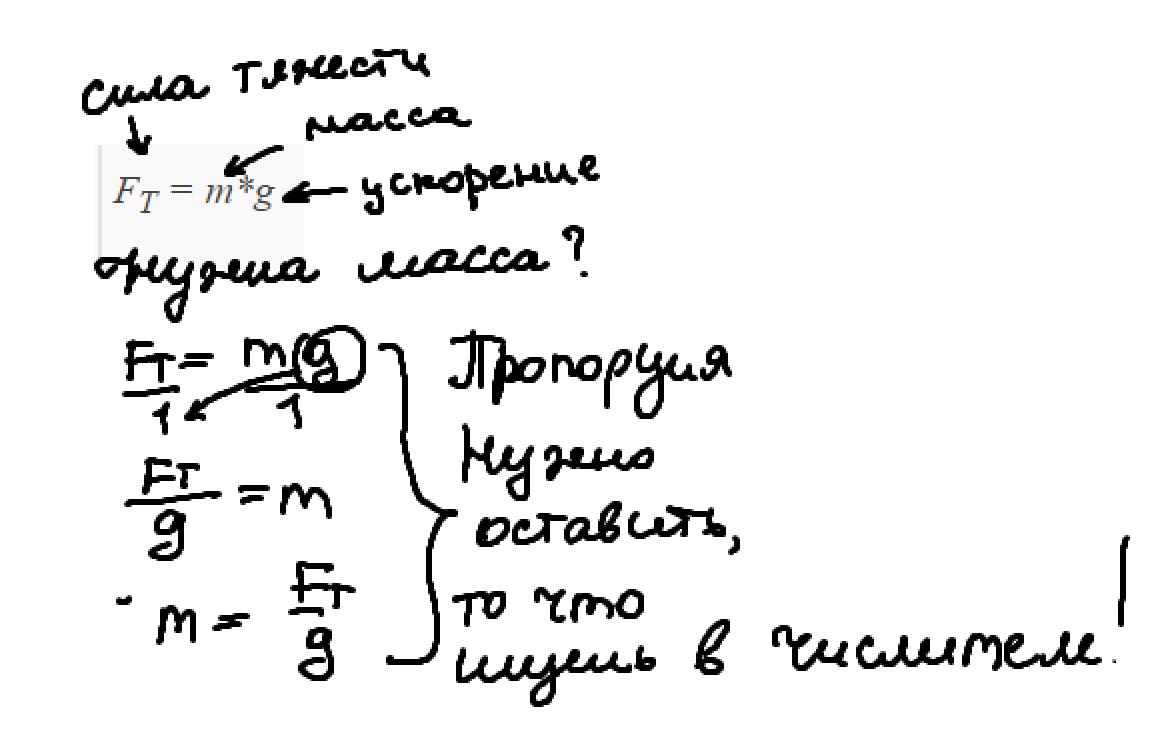 сила тяжести
масса
F_T = m*g
ускорение
нужна масса?
F_T/1 = mg/1
Пропорция
Нужно
F_T/g = m
оставить,
то что
m = F_T/g
ищешь в числителе!